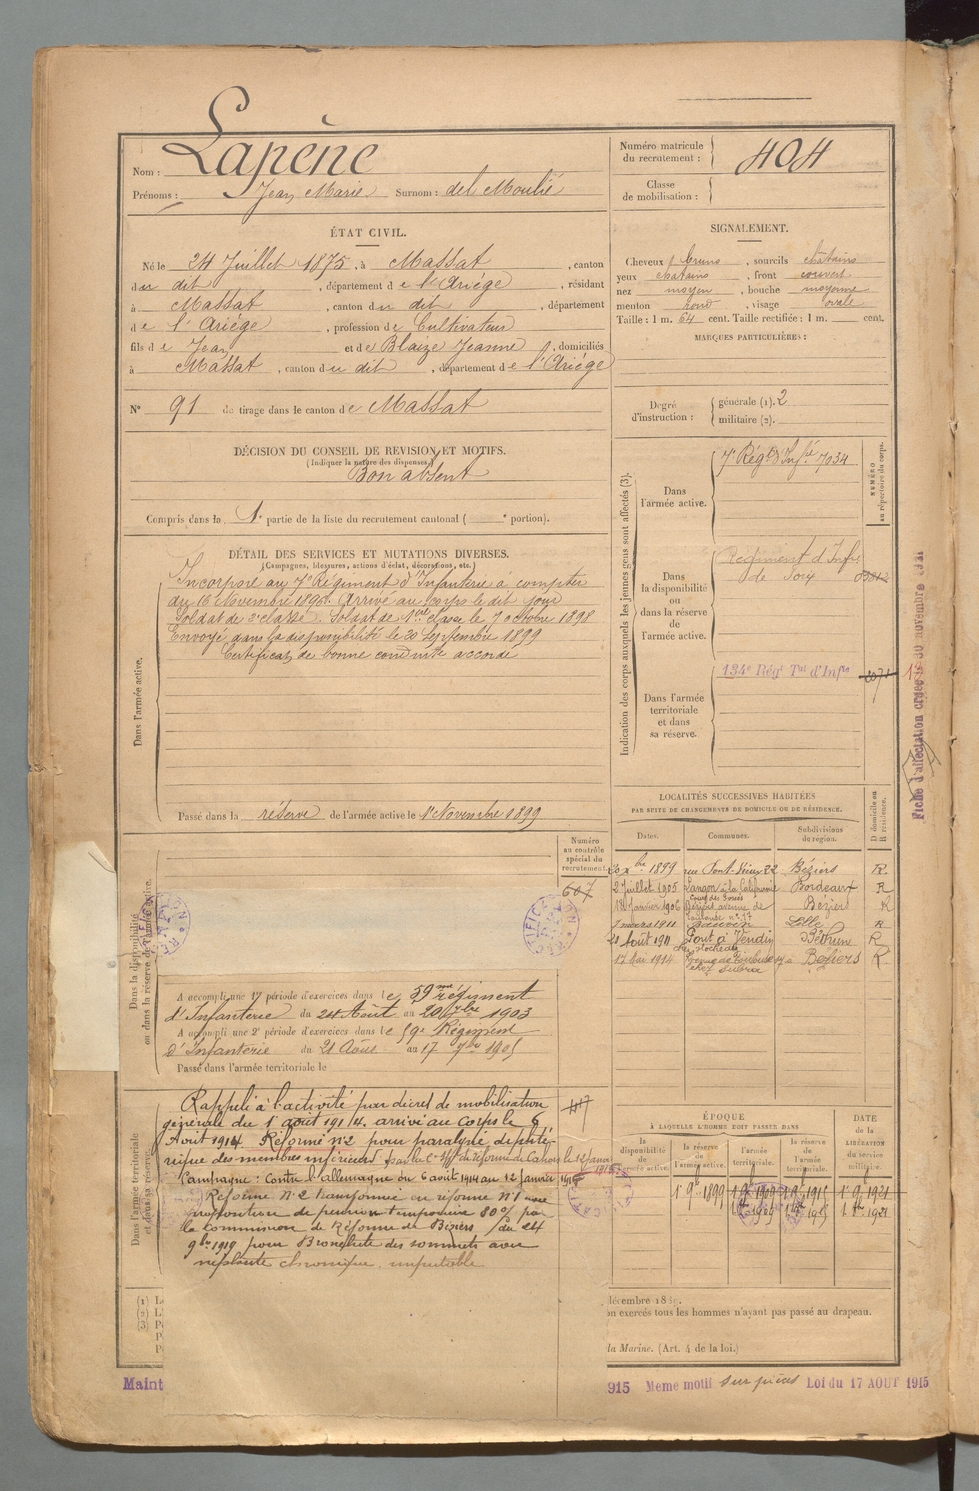 Nom : Lapène
Prénoms : Jean Marie Surnom : del Moulié
ÉTAT CIVIL.
Né le 24 Juillet 1875, à Massat, canton
du dit, département de l'Ariége, résidant
à Massat, canton du dit, département
de l'Ariége, profession de Cultivateur
fils de Jean et de Blaize Jeanne, domiciliés
à Massat, canton du dit, département de l'Ariége
N° 91 de tirage dans le canton de Massat
DÉCISION DU CONSEIL DE REVISION ET MOTIFS.
(Indiquer la nature des dispenses.)
Bon absent
Compris dans la 1e partie de la liste du recrutement cantonal ( e portion).
DÉTAIL DES SERVICES ET MUTATIONS DIVERSES.
(Campagnes, blessures, actions d'éclat, décorations, etc.)
Dans l'armée active.
Incorporé au 7e Régiment d'Infanterie à compter
du 16 Novembre 1896. Arrivé au corps le dit jour
Soldat de 2e classe. Soldat de 1ère classe le 7 octobre 1898
Envoyé dans la disponibilité le 20 Septembre 1899
Certificat de bonne conduite accordé
Passé dans la réserve de l'armée active le 1er Novembre 1899
Numéro
au contrôle
spécial du
recrutement.
607
Dans la disponibilité
ou dans la réserve de l'armée active.
A accompli une 1re période d'exercices dans le 59me régiment
d'Infanterie du 24 Août au 20 7bre 1903
A accompli une 2e période d'exercices dans le 59e Régiment
d'Infanterie du 21 Août au 17 7bre 1905
Passé dans l'armée territoriale le
Dans l'armée territoriale
et dans sa réserve
Rappelé à l'activité par décret de mobilisation
générale du 1 août 1914. arrivé au Corps le 6
Août 1914. Réformé n°2 pour paralysie
des membres inférieurs par la de réforme de Cahors le 12 janvier
1915
Campagne : Contre l'allemagne du 6 août 1914 au 12 janvier 1915
Réforme N°2 transformée en réforme N°1 avec
proposition de pension temporaire 80% par
la commission de Réforme de Béziers du 24
9bre 1919 pour Bronchite des sommets avec
chronique. imputable
Numéro matricule
du recrutement : 404
Classe
de mobilisation :
SIGNALEMENT.
Cheveux bruns, sourcils chatains
yeux chatains, front couvert
nez moyen, bouche moyenne
menton rond, visage ovale
Taille : 1 m. 64 cent. Taille rectifiée : 1 m. cent.
MARQUES PARTICULIÈRES :
Degré
d'instruction :
générale (1). 2
militaire (2).
Indication des corps auxquels les jeunes gens sont affectés (3).
NUMÉRO
au répertoire du corps.
Dans
l'armée active.
7e Régt d'Infie 7034
Dans
la disponibilité
ou
dans la réserve
de
l'armée active.
Régiment d'Infie
de Foix
Dans l'armée
territoriale
et dans
sa réserve.
134e Régt Tal d'Infie
Fiche d'affectation créée le 30 novembre
LOCALITÉS SUCCESSIVES HABITÉES
PAR SUITE DE CHANGEMENTS DE DOMICILE OU DE RÉSIDENCE.
Dates. Communes. Subdivisions
de région. D domicile ou
R résidence.
20 Xbre 1899 rue Pont-Vieux 22 Béziers R.
2 Juillet 1905 Langon à la Californie Bordeaux R
18 Janvier 1906 Béziers avenue de Toulouse n° 17 Béziers R
7 mars 1911 Lille R
21 Août 1911 Pont à Vendin Béthune R
17 Mai 1914 Béziers R
ÉPOQUE
À LAQUELLE L'HOMME DOIT PASSER DANS
la
disponibilité
de
l'armée active.
la réserve
de
l'armée active.
l'armée
territoriale.
la réserve
de
l'armée
territoriale.
DATE
de la
LIBÉRATION
du service
militaire.
1er 9bre 1899 1er 9bre 1909 1er 9bre 1915 1er 9bre 1921
décembre 1889.
on exercés tous les hommes n'ayant pas passé au drapeau.
la Marine. (Art. 4 de la loi.)
(1) L
(2) L
(3) P
P
P
Maint
915 Meme motif sur pièces Loi du 17 AOUT 1915